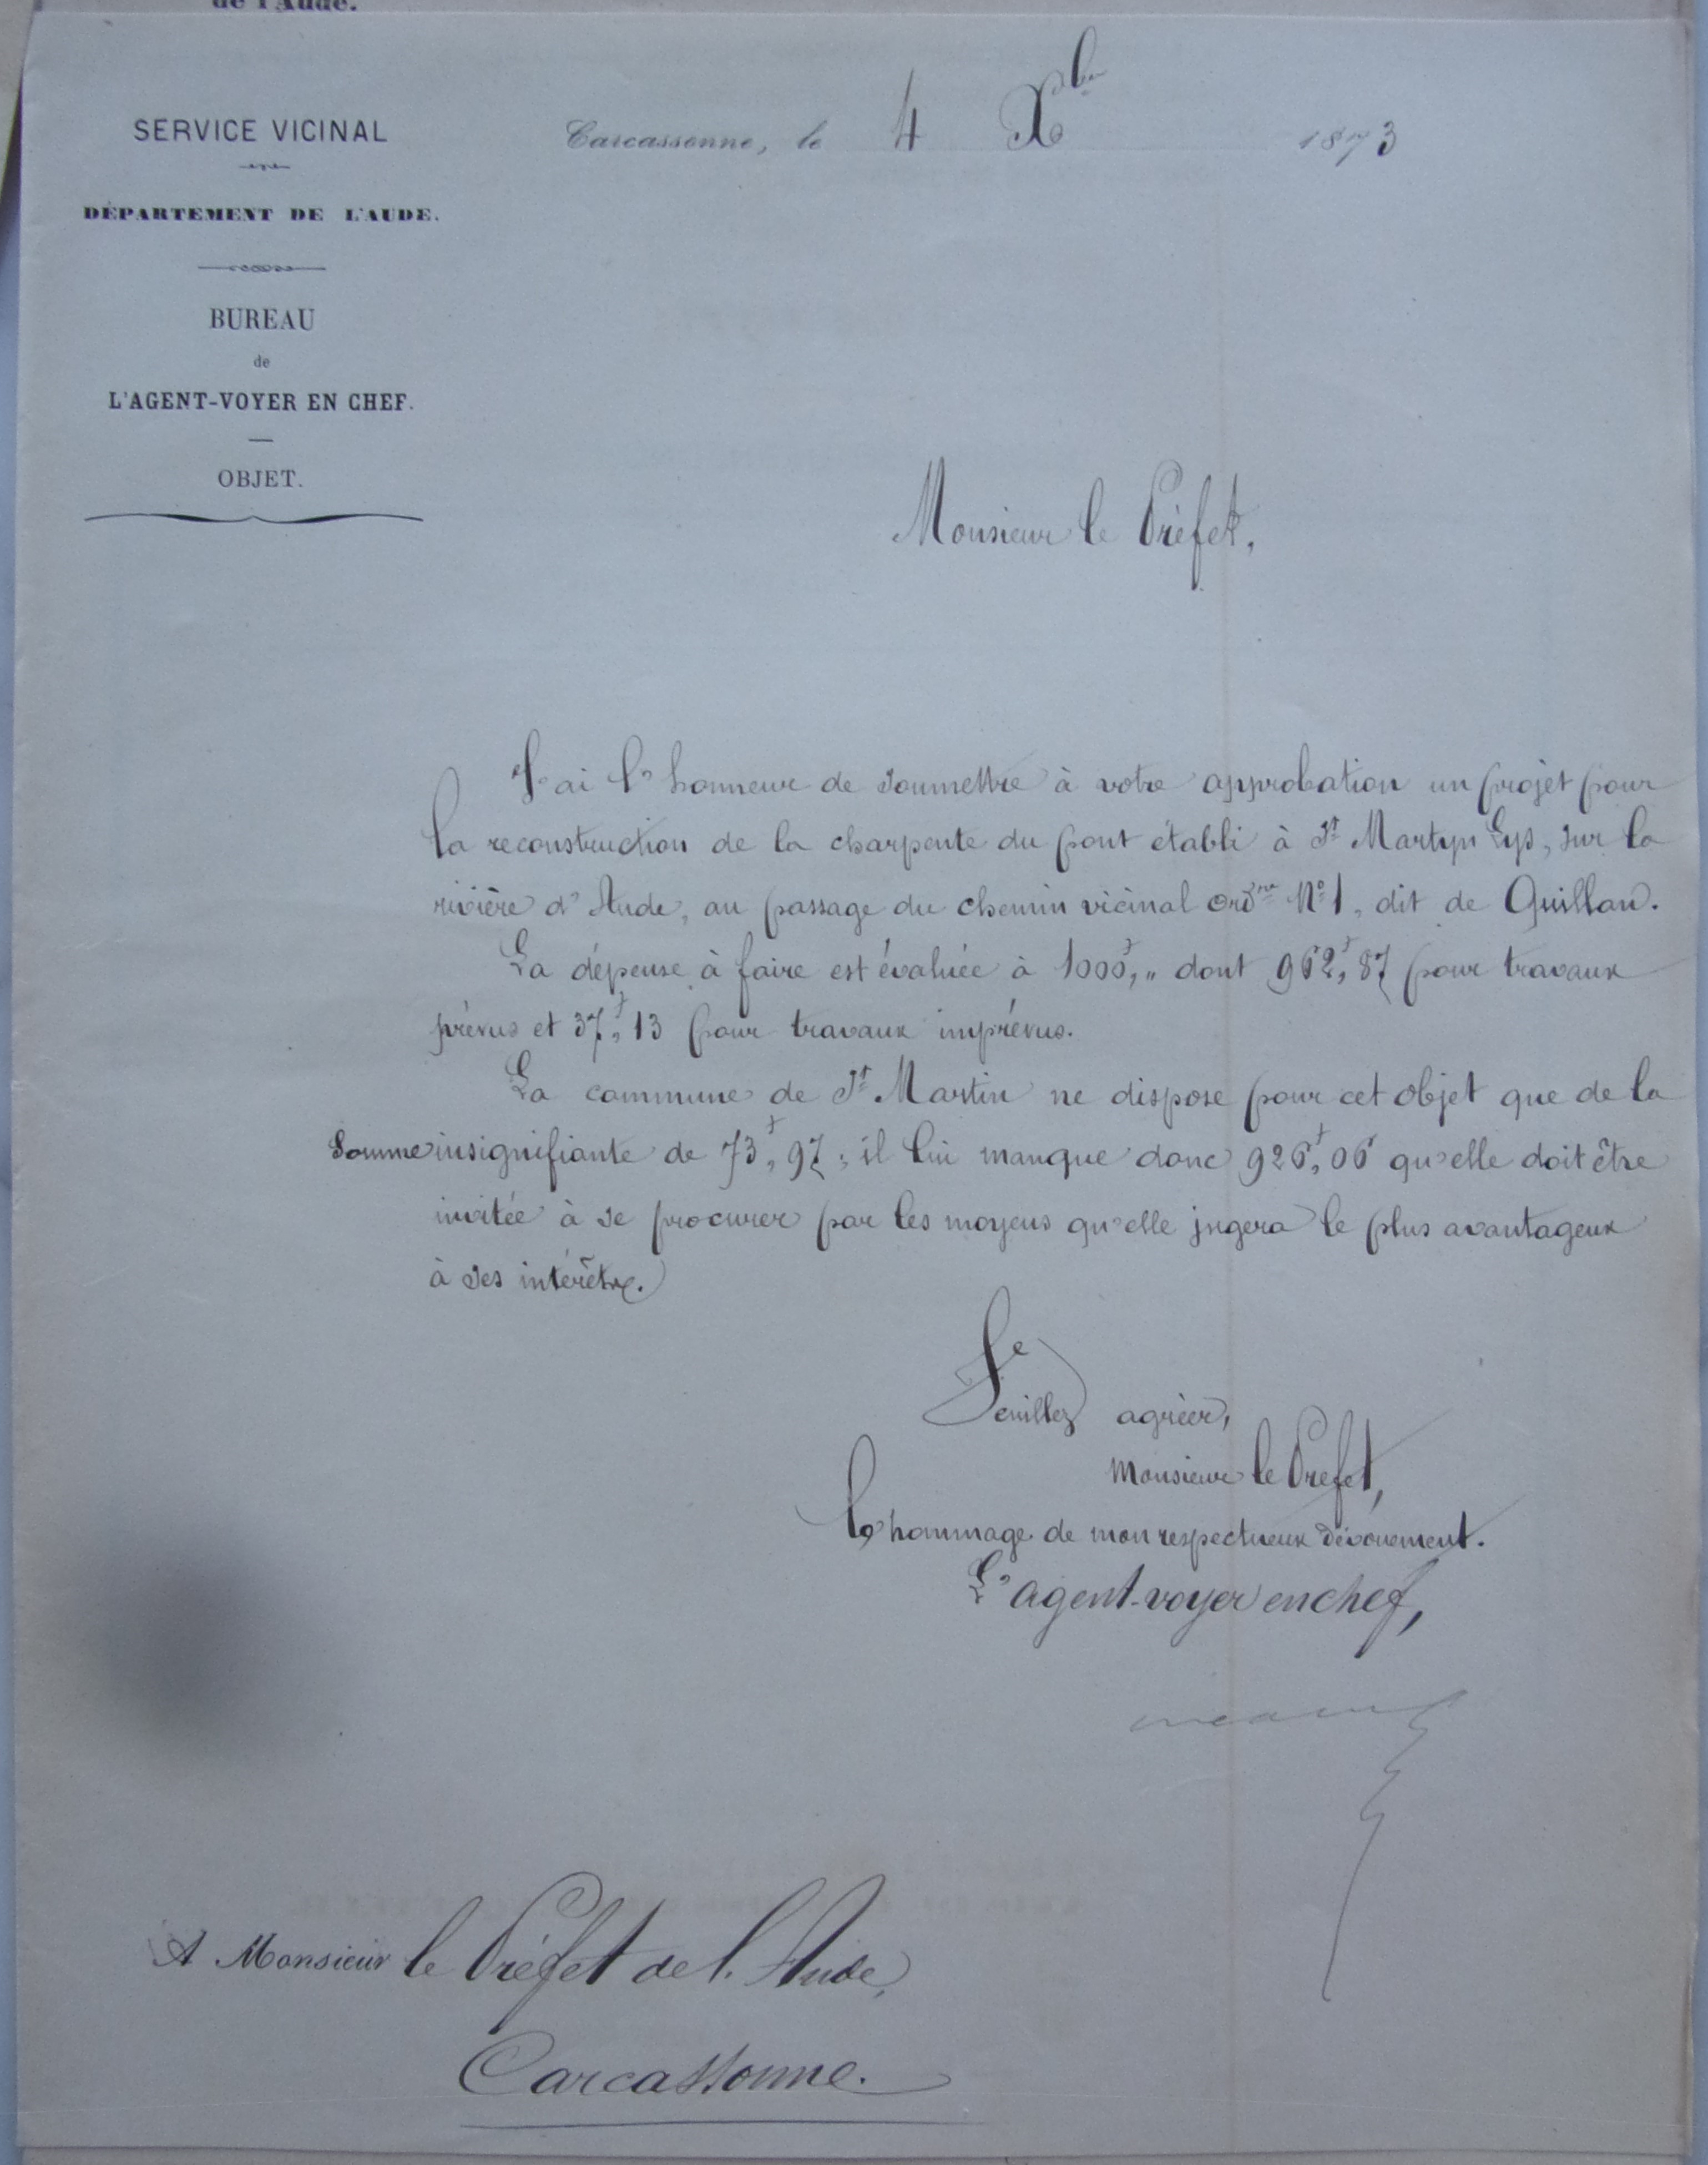 de l'Aude.
SERVICE VICINAL
DÉPARTEMENT DE L'AUDE.
BUREAU
de
L'AGENT-VOYER EN CHEF.
OBJET.
Carcassonne, le 4 Xbre 1873
Monsieur le Préfet,
J'ai l'honneur de soumettre à votre approbation un projet pour
la reconstruction de la charpente du pont établi à St Martyn Lys, sur la
rivière d'Aude, au passage du chemin vicinal ordre No 1, dit de Quillan.
La dépense à faire est évaluée à 1000f,,, dont 962f,87 pour travaux
prévus et 37f,13 pour travaux imprévus.
La commune de St Martin ne dispose pour cet objet que de la
somme insignifiante de 73f,97; il lui manque donc 926f,06 qu'elle doit être
invitée à se procurer par les moyens qu'elle jugera le plus avantageux
à ses intérêts.
Veuillez agréer,
Monsieur le Préfet,
l'hommage de mon respectueux dévouement.
L'agent-voyer en chef,
A Monsieur le Préfet de l'Aude,
Carcassonne.